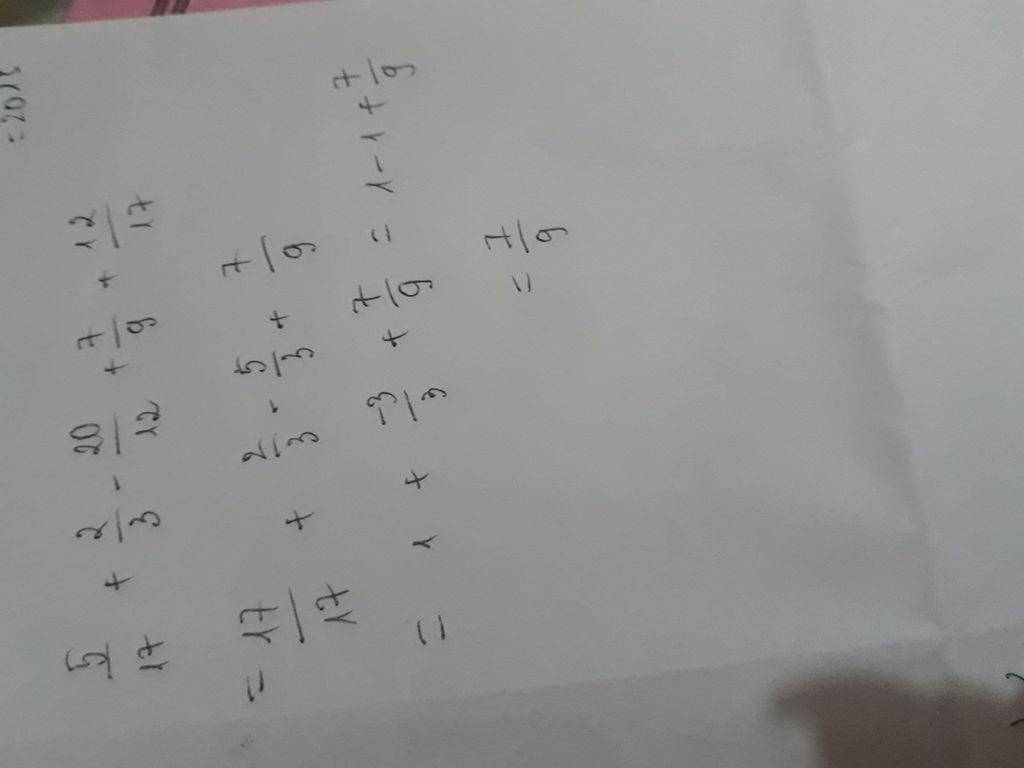 = 20
5/17 + 2/3 - 20/12 + 7/9 + 12/17
= 17/17 + 2/3 - 5/3 + 7/9
= 1 + -3/3 + 7/9 = 1 - 1 + 7/9
= 7/9